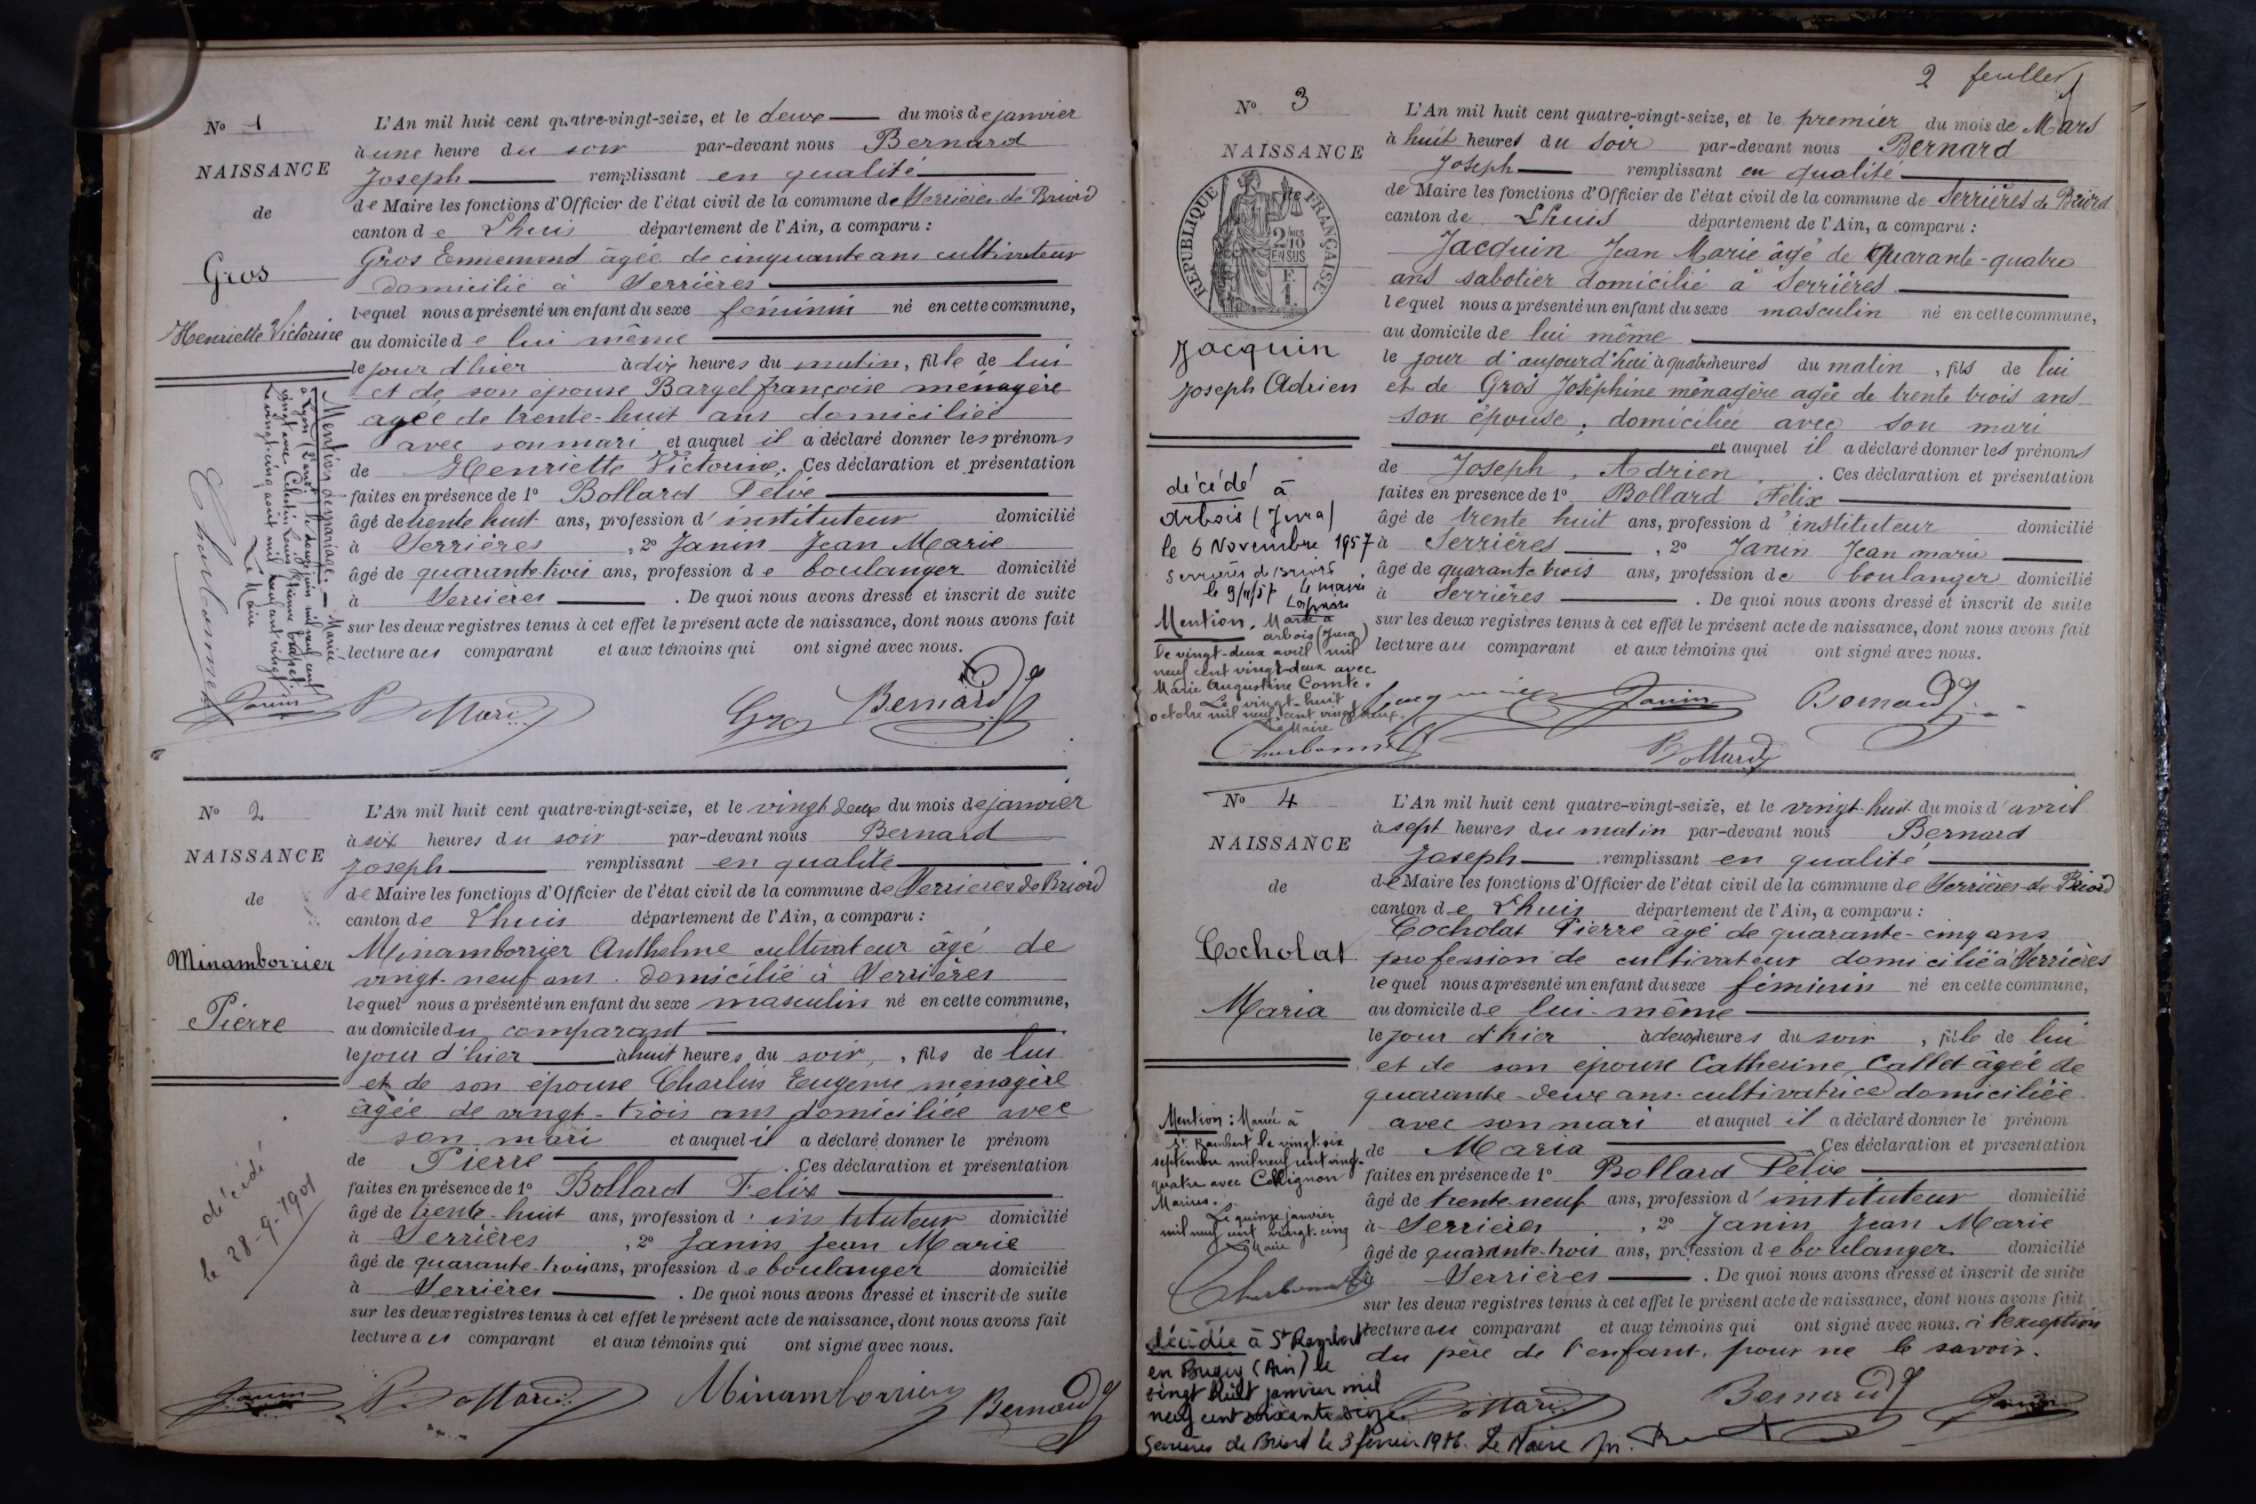 No 1
NAISSANCE
de
Gros
Henriette Victorine
L'An mil huit cent quatre-vingt-seize, et le deux du mois de janvier
à une heure du soir par-devant nous Bernard
Joseph remplissant en qualité
de Maire les fonctions d'Officier de l'état civil de la commune de Serrières de Briord
canton de Lhuis département de l'Ain, a comparu :
Gros Ennemond âgée de cinquante ans cultivateur
domicilié à Serrières
lequel nous a présenté un enfant du sexe féminin né en cette commune,
au domicile de lui même
le jour d'hier à dix heures du matin, fille de lui
et de son épouse Bargel françoise ménagère
agée de trente-huit ans domiciliée
avec son mari et auquel il a déclaré donner les prénoms
de Henriette Victorine. Ces déclaration et présentation
faites en présence de 1o Bollard Félix
âgé de trente huit ans, profession d'instituteur domicilié
à Serrières, 2o Janin Jean Marie
âgé de quarante trois ans, profession de boulanger domicilié
à Serrières. De quoi nous avons dressé et inscrit de suite
sur les deux registres tenus à cet effet le présent acte de naissance, dont nous avons fait
lecture au comparant et aux témoins qui ont signé avec nous.
Mention de mariage. Mariée
à Lyon
Le vingt-cinq août mil neuf cent vingt
Le Maire
Janin Bollard Gros Bernard J
No 2
NAISSANCE
de
Minamborrier
Pierre
L'An mil huit cent quatre-vingt-seize, et le vingt deux du mois de janvier
à six heures du soir par-devant nous Bernard
Joseph remplissant en qualité
de Maire les fonctions d'Officier de l'état civil de la commune de Serrières de Briord
canton de Lhuis département de l'Ain, a comparu :
Minamborrier Anthelme cultivateur âgé de
vingt-neuf ans. domicilié à Serrières
lequel nous a présenté un enfant du sexe masculin né en cette commune,
au domicile du comparant
le jour d'hier à huit heures du soir, fils de lui
et de son épouse Charlin Eugenie ménagère
âgée de vingt-trois ans domiciliée avec
son mari et auquel il a déclaré donner le prénom
de Pierre. Ces déclaration et présentation
faites en présence de 1o Bollard Felix
âgé de trente-huit ans, profession d'instituteur domicilié
à Serrières, 2o Janin Jean Marie
âgé de quarante-trois ans, profession de boulanger domicilié
à Serrières. De quoi nous avons dressé et inscrit de suite
sur les deux registres tenus à cet effet le présent acte de naissance, dont nous avons fait
lecture au comparant et aux témoins qui ont signé avec nous.
décédé
le 28-9-1901
Janin Bollard Minamborrier Bernard J
2 feuillet
No 3
NAISSANCE
RÉPUBLIQUE FRANÇAISE
2 10
EN SUS
Jacquin
Joseph Adrien
L'An mil huit cent quatre-vingt-seize, et le premier du mois de Mars
à huit heures du soir par-devant nous Bernard
Joseph remplissant en qualité
de Maire les fonctions d'Officier de l'état civil de la commune de Serrières de Briord
canton de Lhuis département de l'Ain, a comparu :
Jacquin Jean Marie âgé de quarante-quatre
ans sabotier domicilié à Serrières.
lequel nous a présenté un enfant du sexe masculin né en cette commune,
au domicile de lui même
le jour d'aujourd'hui à quatre heures du matin, fils de lui
et de Gros Joséphine ménagère agée de trente trois ans
son épouse, domiciliée avec son mari
et auquel il a déclaré donner les prénoms
de Joseph, Adrien. Ces déclaration et présentation
faites en presence de 1o Bollard Félix
âgé de trente huit ans, profession d'instituteur domicilié
à Serrières, 2o Janin Jean marie
âgé de quarante trois ans, profession de boulanger domicilié
à Serrières. De quoi nous avons dressé et inscrit de suite
sur les deux registres tenus à cet effet le présent acte de naissance, dont nous avons fait
lecture au comparant et aux témoins qui ont signé avec nous.
décédé à
Arbois (Jura)
le 6 Novembre 1957
Serrières de Briord
le 9/11/57 le maire
Mention. Marié à
arbois (Jura)
le vingt-deux avril mil
neuf cent vingt-deux avec
Marie Augustine Comte.
Le vingt-huit
octobre mil neuf cent vingt deux.
Le Maire
Jacquin Janin Bernard J
Bollard
No 4
NAISSANCE
de
Cocholat
Maria
L'An mil huit cent quatre-vingt-seize, et le vingt-huit du mois d'avril
à sept heures du matin par-devant nous Bernard
Joseph remplissant en qualité
de Maire les fonctions d'Officier de l'état civil de la commune de Serrières de Briord
canton de Lhuis département de l'Ain, a comparu :
Cocholat Pierre âgé de quarante-cinq ans
profession de cultivateur domicilié à Serrières
lequel nous a présenté un enfant du sexe féminin né en cette commune,
au domicile de lui-même
le jour d'hier à deux heures du soir, fille de lui
et de son epouse Catherine Callet âgée de
quarante-deux ans. cultivatrice domiciliée
avec son mari et auquel il a déclaré donner le prénom
de Maria Ces déclaration et présentation
faites en présence de 1o Bollard Felix
âgé de trente-neuf ans, profession d'instituteur domicilié
à Serrières, 2o Janin Jean Marie
âgé de quarante-trois ans, profession de boulanger domicilié
Serrières. De quoi nous avons dressé et inscrit de suite
sur les deux registres tenus à cet effet le présent acte de naissance, dont nous avons fait
lecture au comparant et aux témoins qui ont signé avec nous. à l'exception
du père de l'enfant, pour ne le savoir.
Mention : Mariée à
St Rambert le vingt-six
septembre mil neuf cent vingt-
quatre avec Collignon
Marius.
Le quinze janvier
mil neuf cent vingt-cinq
Le Maire
décédée à St Rambert
en Bugey (Ain) le
vingt huit janvier mil
neuf cent soixante seize.
Serrières de Briord le 3 février 1976. Le Maire
Bollard Bernard J Janin